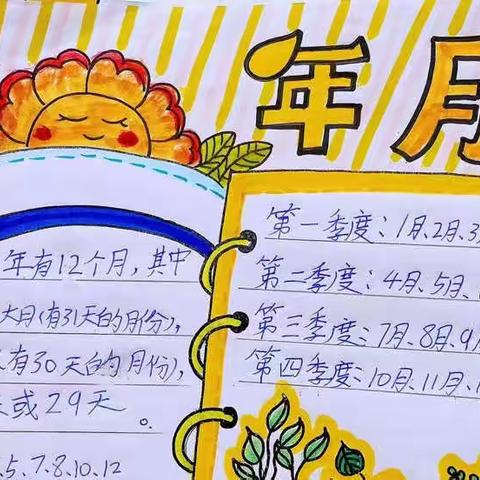 年月
年有12个月,其中
大月(有31天的月份),
有30天的月份),
或29天。
.5.7.8.10.12
第一季度:1月、2月、3
第二季度:4月、5月、
第三季度:7月、8月、9
第四季度:10月、11月、1